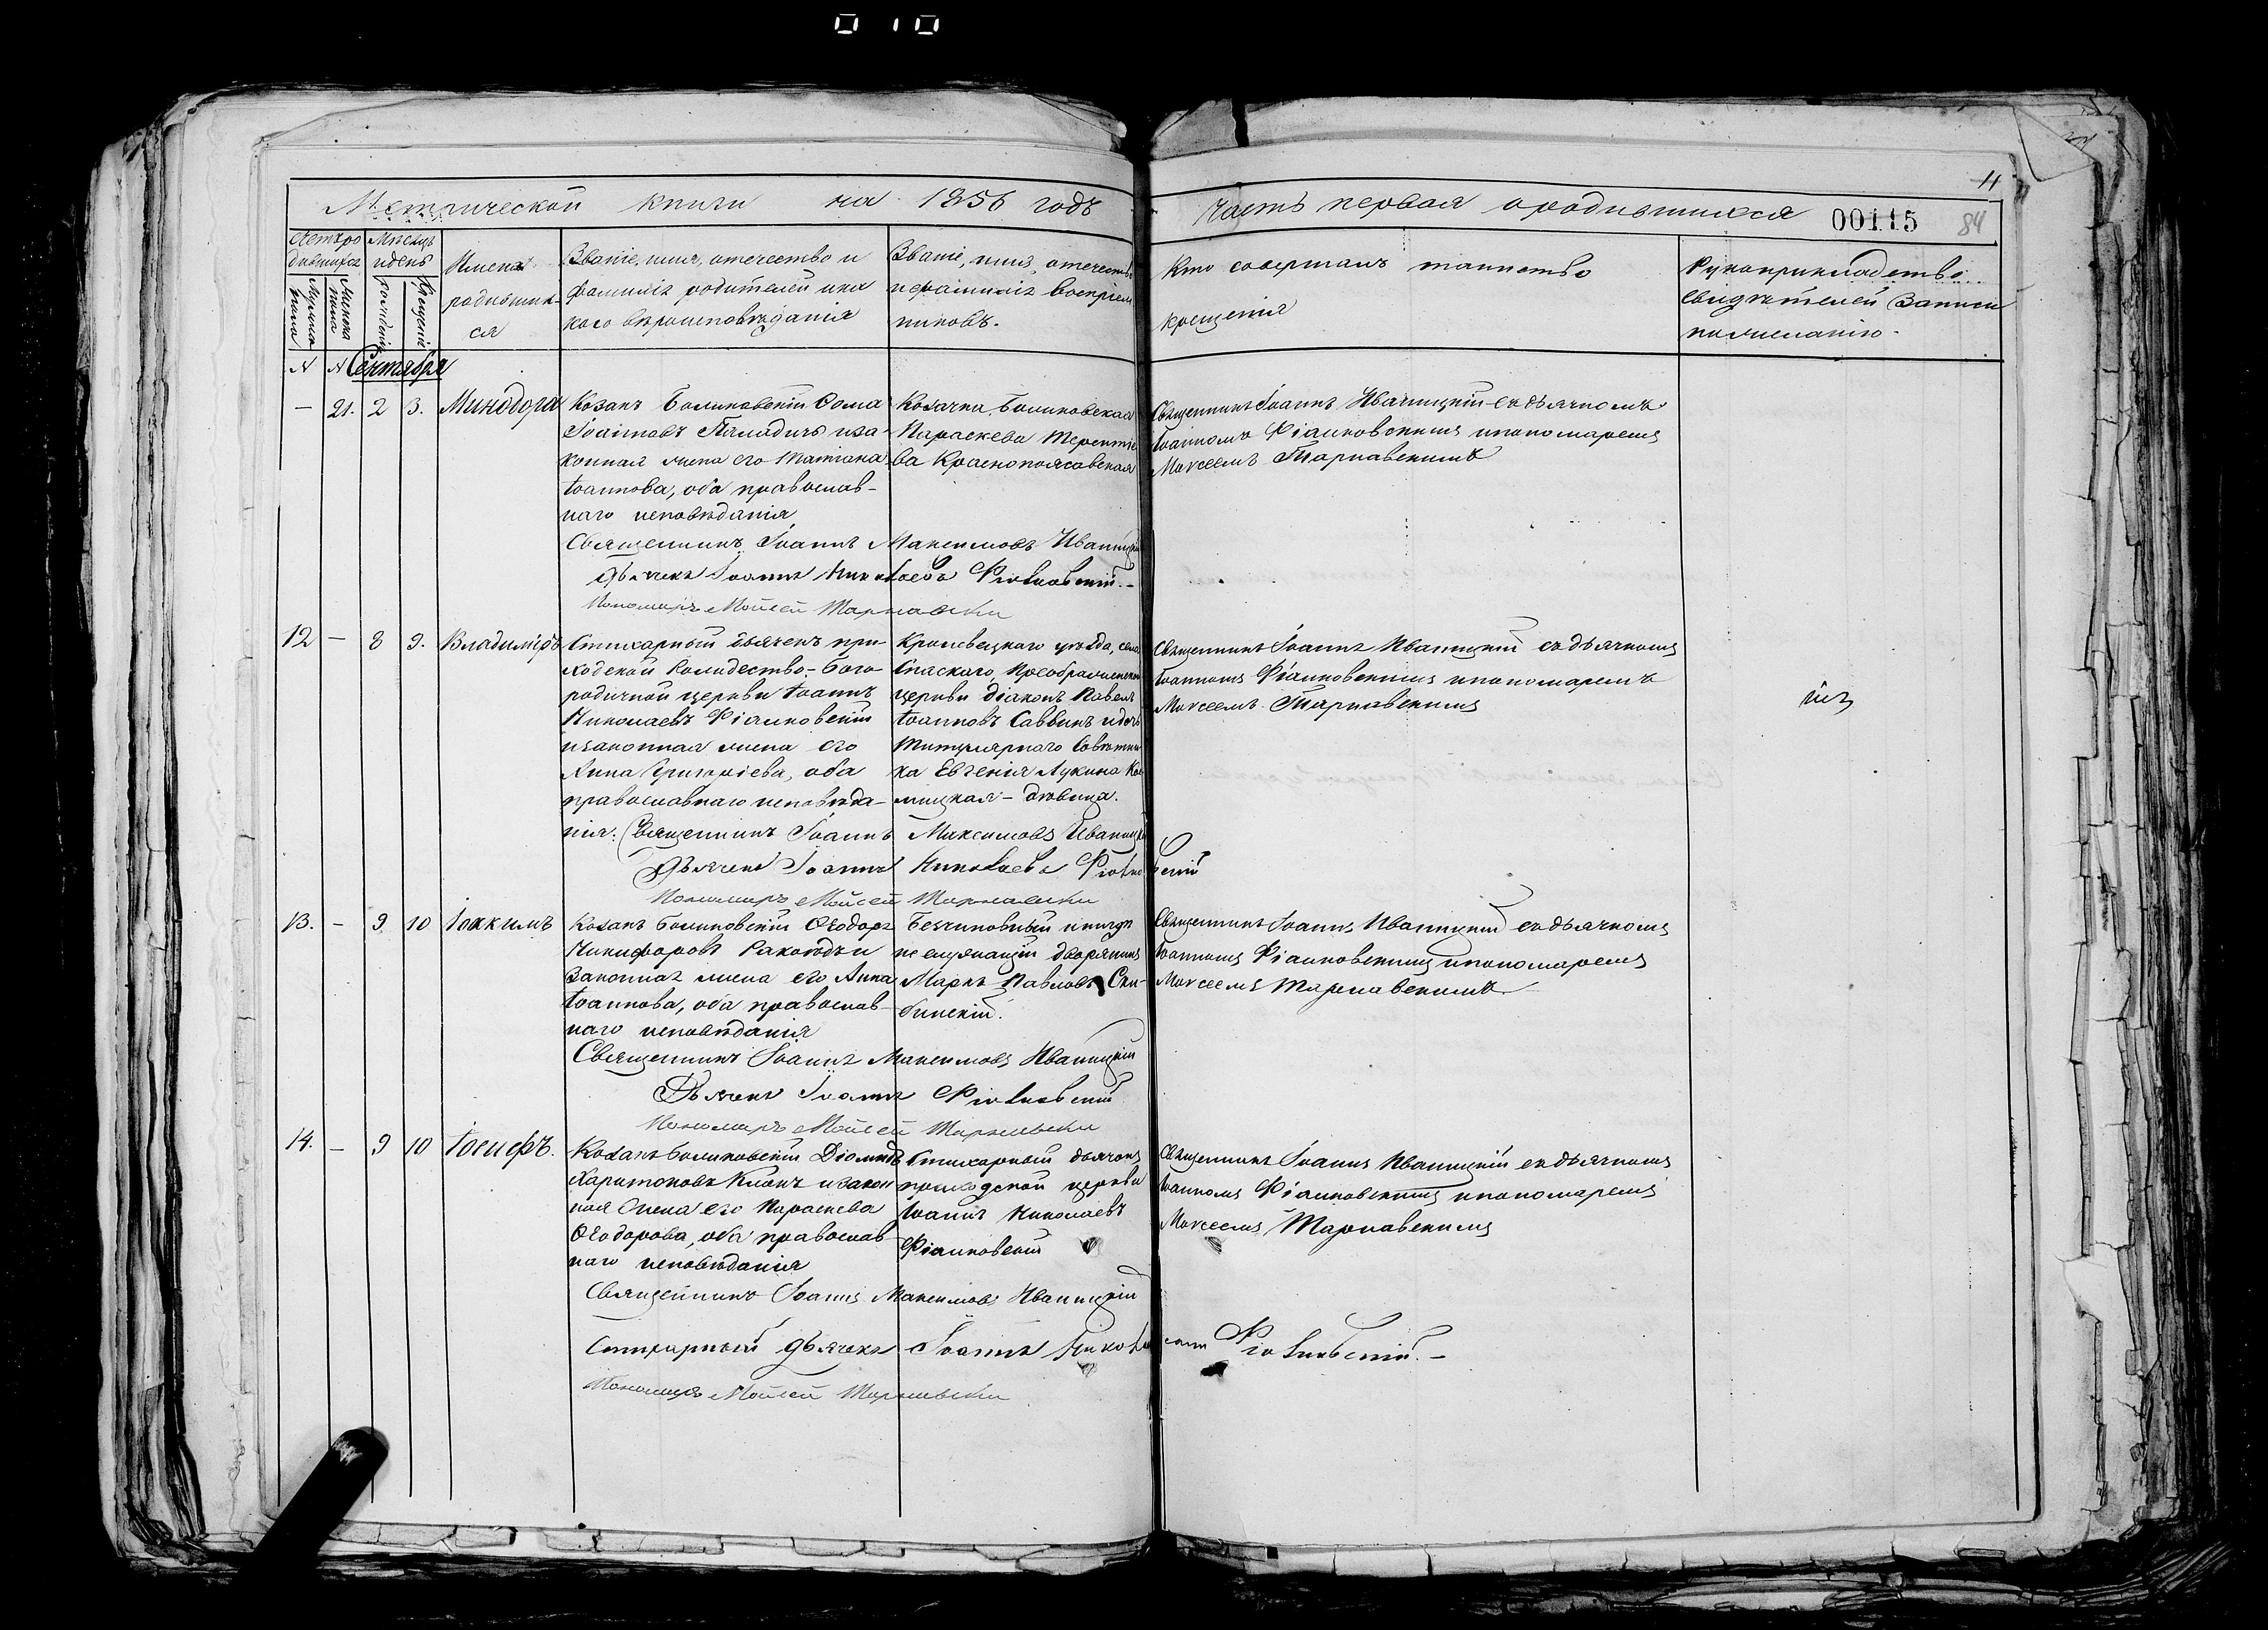 010
11
Метрической книги на 1856 годъ
часть первая о родившихся
00115
84
Счетъ родившихся
Мужеска пола
Женска пола
Мѣсяцъ и день
рожденія
крещенія
Имена родившихся
Званіе, имя, отечество и
фамилія родителей и ка
кого вѣроисповѣданія
Званіе, имя, отечество
и фамилія воспріем
никовъ.
Кто совершалъ таинство
крещенія
Рукоприкладство
свидѣтелей записи
по желанію.
№ № Сентября
— 21. 2 3. Минодора
Козакъ Ѳома
Іоанновъ и за-
конная жена его Татіана
Іоаннова, оба православ-
наго исповѣданія
Козачка
Параскева Терентіе
ва
Священникъ Іоаннъ Иваницкій съ дьячкомъ
Іоанномъ Фіалковскимъ и пономаремъ
Моѵсеемъ Тарнавскимъ
Священникъ Іоаннъ Максимовъ Иваницкій
Дьячекъ Іоаннъ Николаевъ Фіалковскій.-
Пономарь Мойсей Тарнавски
12 — 8 9. Владиміръ
Стихарный дьячекъ при-
ходской Рождество-Бого-
родичной церкви Іоаннъ
Николаевъ Фіалковскій
и законная жена его
Анна Григоріева, оба
православнаго исповѣда-
нія.
Кролевецкаго уѣзда, села
Спаскаго, Преображенской
церкви діаконъ Павелъ
Іоанновъ Саввинъ и дочь
Титулярнаго Совѣтни
ка Евгенія Лукина
дѣвица.
Священникъ Іоаннъ Иваницкій съ дьячкомъ
Іоанномъ Фіалковскимъ и пономаремъ
Моѵсеемъ Тарнавскимъ
Священникъ Іоаннъ Максимовъ Иваницкій
Дьячекъ Іоаннъ Николаевъ Фіалковскій
Пономарь Мойсей Тарнавски
13. — 9 10 Іоакимъ
Козакъ Ѳеодоръ
Никифоровъ и
законная жена его Анна
Іоаннова, оба православ-
наго исповѣданія
Безчиновный и нигдѣ
не служащій дворянинъ
Маркъ Павловъ
Священникъ Іоаннъ Иваницкій съ дьячкомъ
Іоанномъ Фіалковскимъ и пономаремъ
Моѵсеемъ Тарнавскимъ
Священникъ Іоаннъ Максимовъ Иваницкій
Дьячекъ Іоаннъ Фіалковскій
Пономарь Мойсей Тарнавски
14. — 9 10 Іосифъ.
Козакъ Діомидъ
Харитоновъ и закон
ная жена его Параскева
Ѳеодорова, оба православ
наго исповѣданія
Стихарный дьячекъ
приходской церкви
Іоаннъ Николаевъ
Фіалковскій
Священникъ Іоаннъ Иваницкій съ дьячкомъ
Іоанномъ Фіалковскимъ и пономаремъ
Моѵсеемъ Тарнавскимъ
Священникъ Іоаннъ Максимовъ Иваницкій
Стихарный дьячекъ Іоаннъ Николаевъ Фіалковскій.-
Пономарь Мойсей Тарнавски